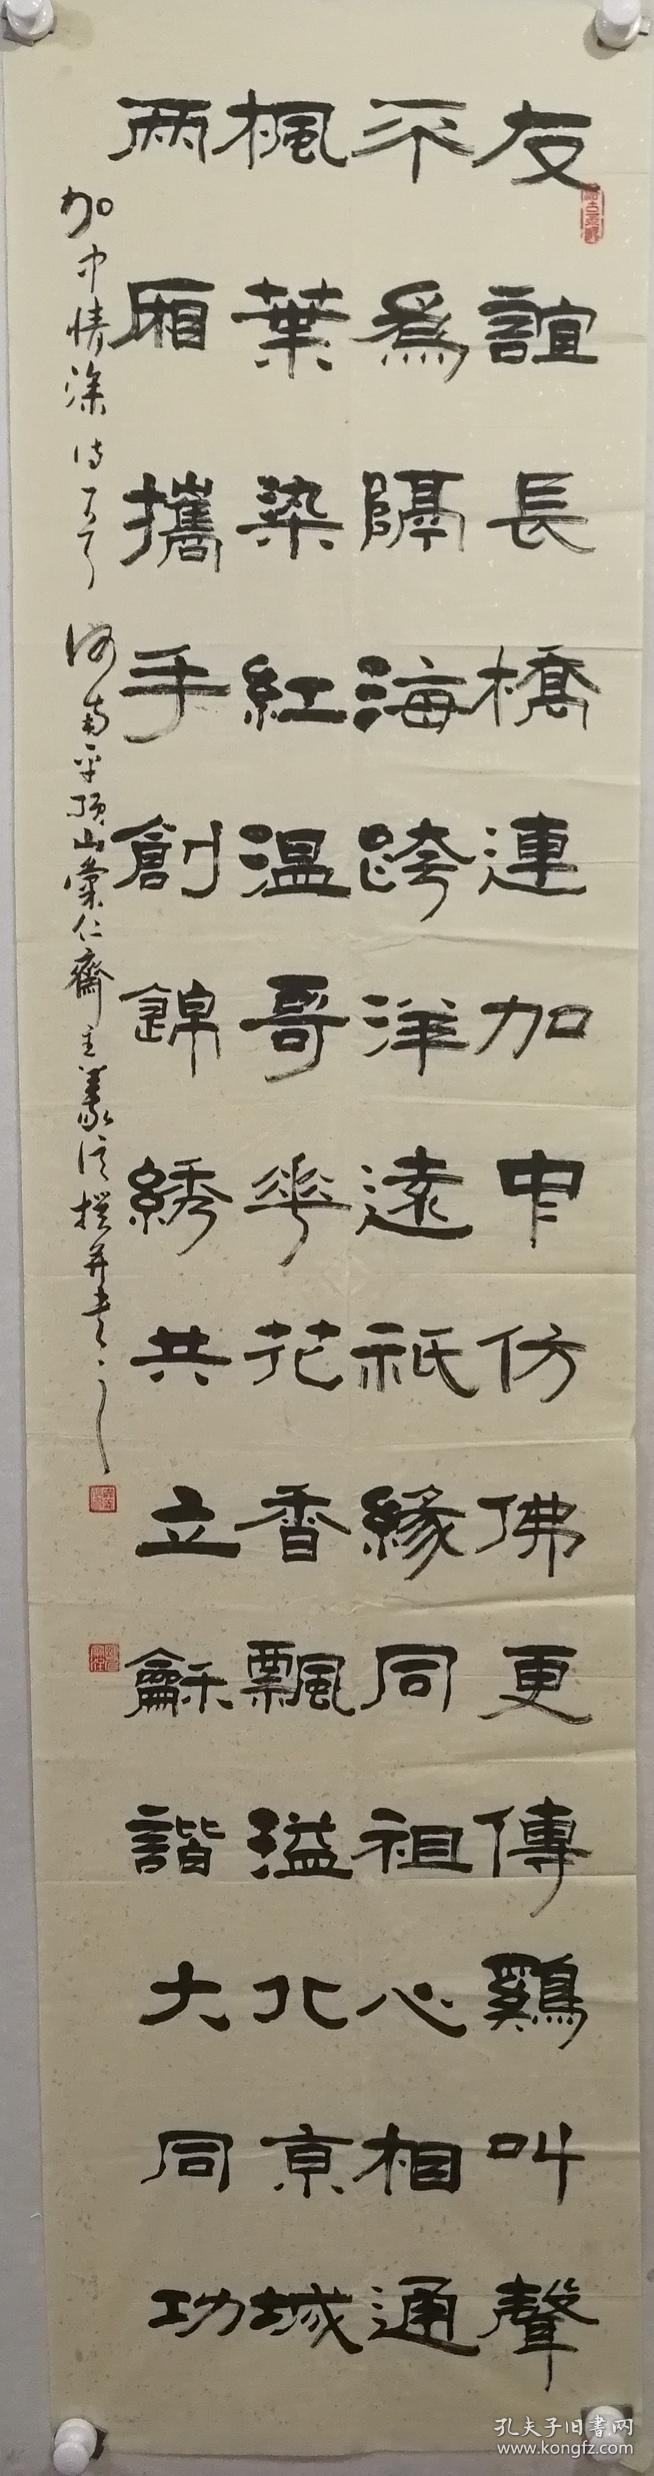 友誼長橋連加中仿佛更傳鷄叫聲
不爲隔海跨洋遠祇緣同祖心相通
楓葉染紅温哥華花香飄溢北京城
兩厢攜手創錦綉共立龢諧大同功
加中情深詩一首 河南平頂山棠仁齋主義信撰并書
孔夫子旧书网
www.kongfz.com